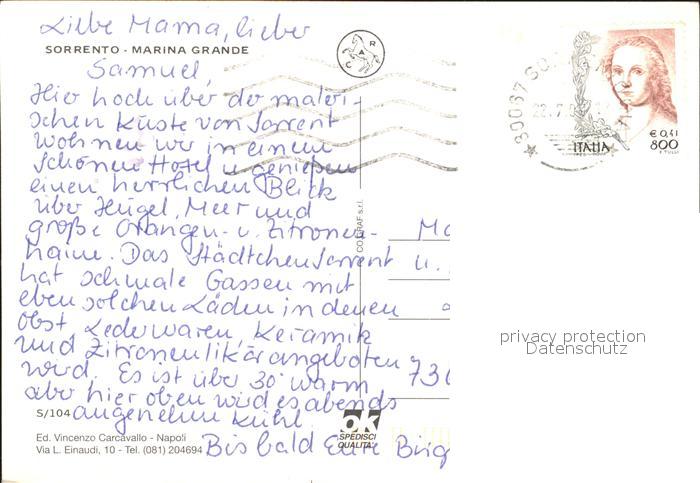 Liebe Mama, lieber
SORRENTO - MARINA GRANDE
Samuel,
Hier hoch über der maleri-
schen Küste von Sorrent
wohnen wir in einem
schönen Hotel u. genießen
einen herrlichen Blick
über Hügel, Meer und
große Orangen- u. Zitronen-
haine. Das Städtchen Sorrent
hat schmale Gassen mit
eben solchen Läden in denen
Obst, Lederwaren, Keramik
und Zitronenlikör angeboten
wird. Es ist über 30° warm
aber hier oben wird es abends
angenehm kühl.
Bis bald Eure Brig
S/104
Ed. Vincenzo Carcavallo - Napoli
Via L. Einaudi, 10 - Tel. (081) 204694
CAR
ok
SPEDISCI
QUALITA'
80067 SO
22.7
ITALIA
€ 0,41
800
u.
736
privacy protection
Datenschutz